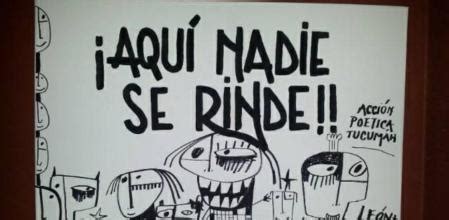 ¡AQUÍ NADIE
SE RINDE!!
ACCIÓN
POETICA
TUCUMAN
LEÓN